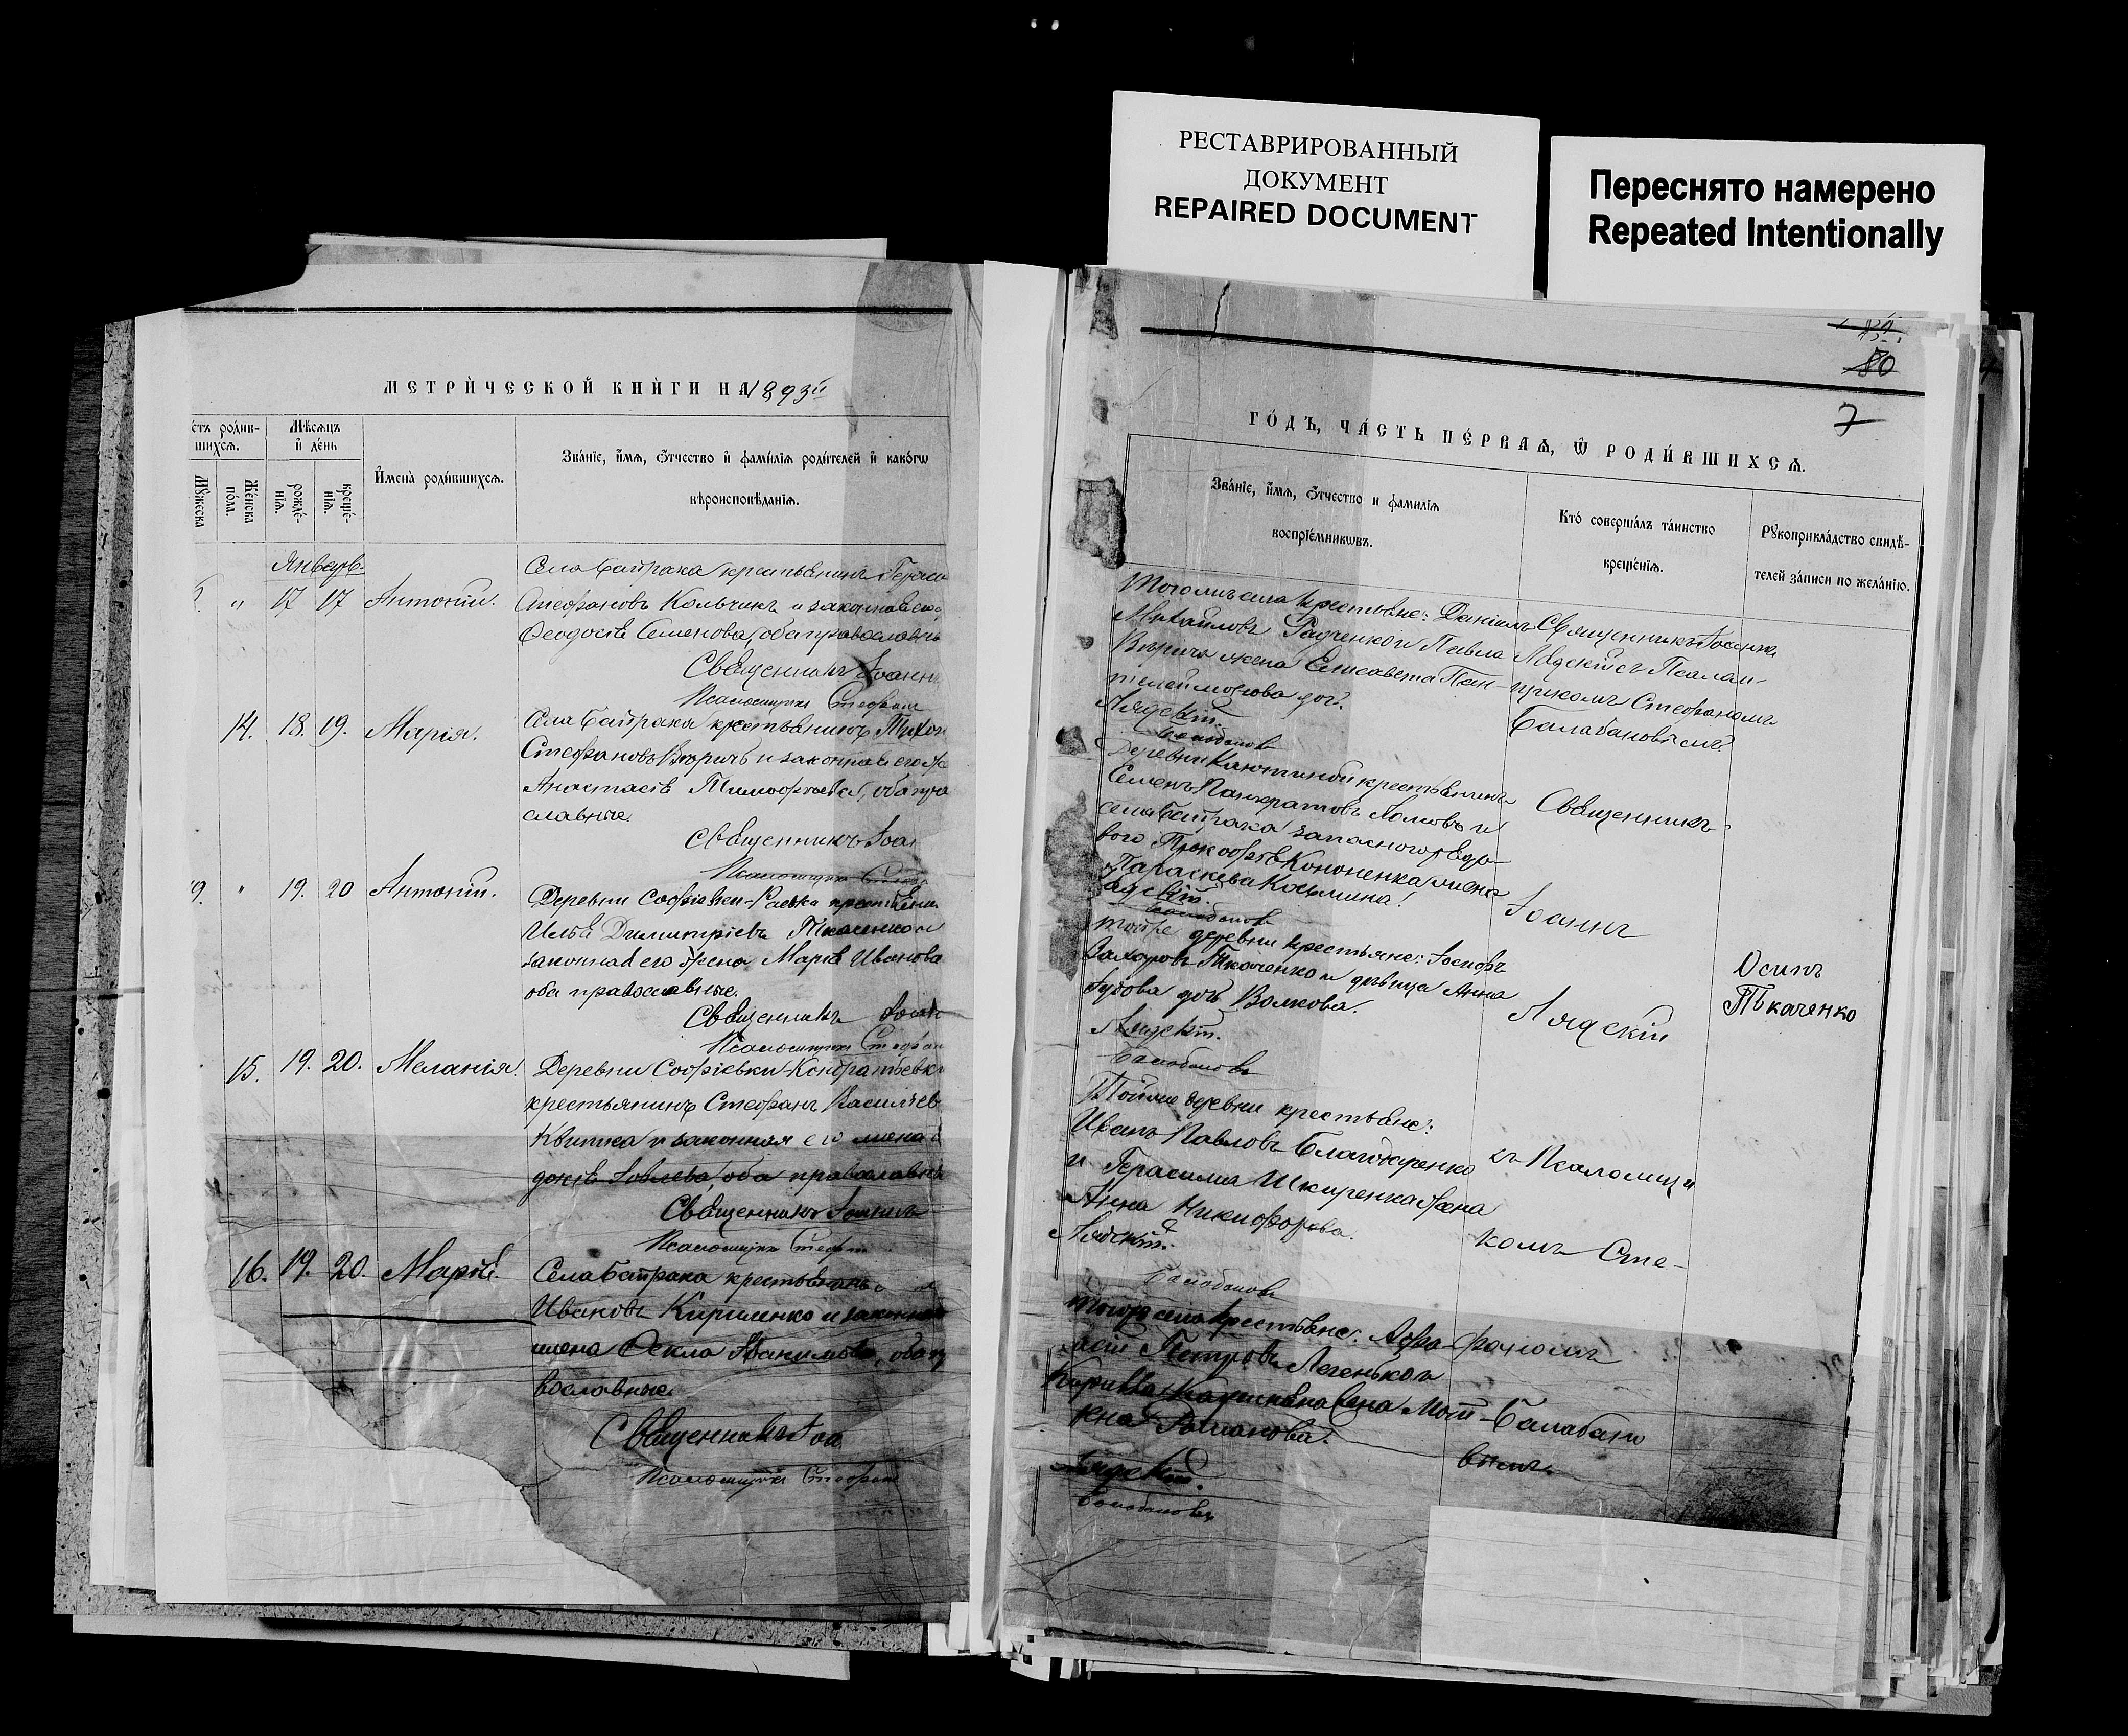 РЕСТАВРИРОВАННЫЙ
ДОКУМЕНТ
REPAIRED DOCUMENT
Переснято намерено
Repeated Intentionally
80
7
МЕТРИ́ЧЕСКОЙ КНИ́ГИ НА 1893й
е́тъ роди́в-
шихсѧ.
Мѣ́сѧцъ
и҆ де́нь
Мꙋ́жеска
Же́нска
по́ла.
рожде́-
нїѧ.
креще́-
нїѧ.
И҆мена̀ роди́вшихсѧ.
Зва́нїе, и҆́мѧ, ѻ҆́тчество и҆ фами́лїѧ роди́телей и҆ како́гѡ
вѣроисповѣ́данїѧ.
Январь.
" 17 17 Антоній.
Села Байрака крестьянинъ
Стефановъ Кольчикъ и законная его
Феодосія Семенова, оба православн
Священникъ Іоанн
Псаломщикъ Стефан
14. 18. 19. Марія.
Села Байрака крестьянинъ Тихон
Стефановъ Вторичъ и законная его
Анастасія Тимофеева, оба пра
славные.
Священникъ Іоа
Псаломщикъ
9. " 19. 20 Антоній.
Деревни Софіевки-Раевка крестьянин
Илья Димитріевъ Ткаченко и
законная его жена Марія Иванова
оба православные.
Священникъ Іоан
Псаломщикъ Стефан
15. 19. 20. Меланія.
Деревни Софіевки-Кондратьевк
крестьянинъ Стефанъ Васильев
Квитка и законная его жена
докія Іовлева, оба православн
Священникъ Іоаннъ
Псаломщикъ Стефан
16. 19. 20. Марія.
Села Байрака крестьянинъ
Ивановъ Кириленко и законная
жена Фекла Іоакимова, оба п
вославные.
Священникъ Іоа
Псаломщикъ Стефан
ГО́ДЪ, ЧА́СТЬ ПЕ́РВАѦ, Ѡ҆ РОДИ́ВШИХСѦ.
Зва́нїе, и҆́мѧ, ѻ҆́тчество и фами́лїѧ
воспрїе́мникѡвъ.
Кто̀ соверша́лъ та́инство
креще́нїѧ.
Рꙋкоприкла́дство свидѣ́-
телей за́писи по жела́нїю.
Того же села крестьяне: Даніилъ
Михайловъ Радченко и Павла
Вторича жена Елисавета Пан-
телеймонова доч.
Лядскій.
Балабановъ
Священникъ Іоаннъ
Лядскій съ Псалом-
щикомъ Стефаномъ
Балабановымъ.
Деревни крестьянинъ
Семенъ Панкратовъ Ломовъ и
села Байрака запасного рядо-
вого Прокофія Кононенка жена
Параскева Косьмина.
Лядскій.
Балабановъ
Священникъ
Іоаннъ
той же деревни крестьяне: Іосифъ
Захаровъ Ткаченко и дѣвица Анна
доч. Волкова.
Лядскій.
Балабановъ
Лядскій
Осипъ
Ткаченко
Той же деревни крестьяне:
Иванъ Павловъ Благодаренко
и Герасима Шкиренка жена
Анна Никифорова.
Лядскій.
Балабановъ
съ Псаломщи
комъ Сте-
того же села крестьяне: Афа-
насій Петровъ Легенькой
Кирилла жена Мат-
рена Романова.
Лядскій.
Балабановъ
фаномъ
Балабано
вымъ.